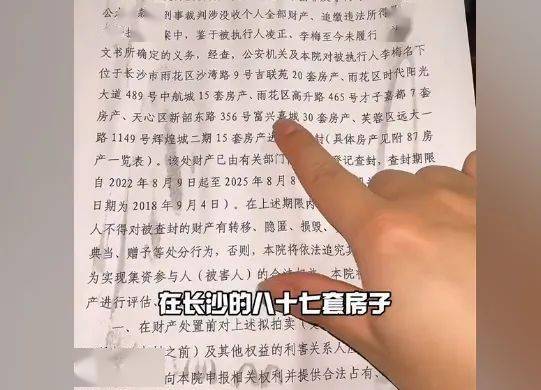 刑事裁判涉没收个人全部财产、追缴违法所得
案中，鉴于被执行人凌正、李梅至今未履行
文书所确定的义务，经查，公安机关及本院对被执行人李梅名下
位于长沙市雨花区沙湾路9号吉联苑20套房产、雨花区时代阳光
大道489号中航城15套房产、雨花区高升路465号才子嘉都7套
房产、天心区新韶东路356号富兴嘉城30套房产、芙蓉区远大一
路1149号辉煌城二期15套房产进 封（具体房产见附87房
产一览表）。该处财产已由有关部门 登记查封，查封期限
自2022年8月9日起至2025年8月8
日期为2018年9月4日）。在上述期限内
人不得对被查封的财产有转移、隐匿、损毁、
典当、赠予等处分行为，否则，本院将依法追究其
为实现集资参与人（被害人）的合法权 本院将
产进行评估、
在长沙的八十七套房子
一、在财产处置前对上述拟拍卖（
之前）及其他权益的利害关系人应
向本院申报相关权利并提供合法占有、